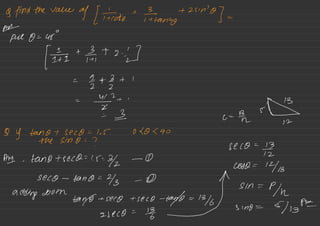 Q find the value of [ 1/(1+cotθ) + 3/(1+tan²θ) + 2 sin²θ ] =
put θ = 45°
[ 1/(1+1) + 3/(1+1) + 2 · 1/2 ]
= 1/2 + 3/2 + 1
= 4/2 + 1
= 3
Q if tanθ + secθ = 1.5 0<θ<90
the sinθ = ?
Ans. tanθ + secθ = 1.5 = 3/2 — ①
secθ - tanθ = 2/3 — ②
adding
tanθ + secθ + secθ - tanθ = 13/6
2 secθ = 13/6
13
5
12
secθ = 13/12
cosθ = 12/13
sin = P/h
sinθ = 5/13 Ans